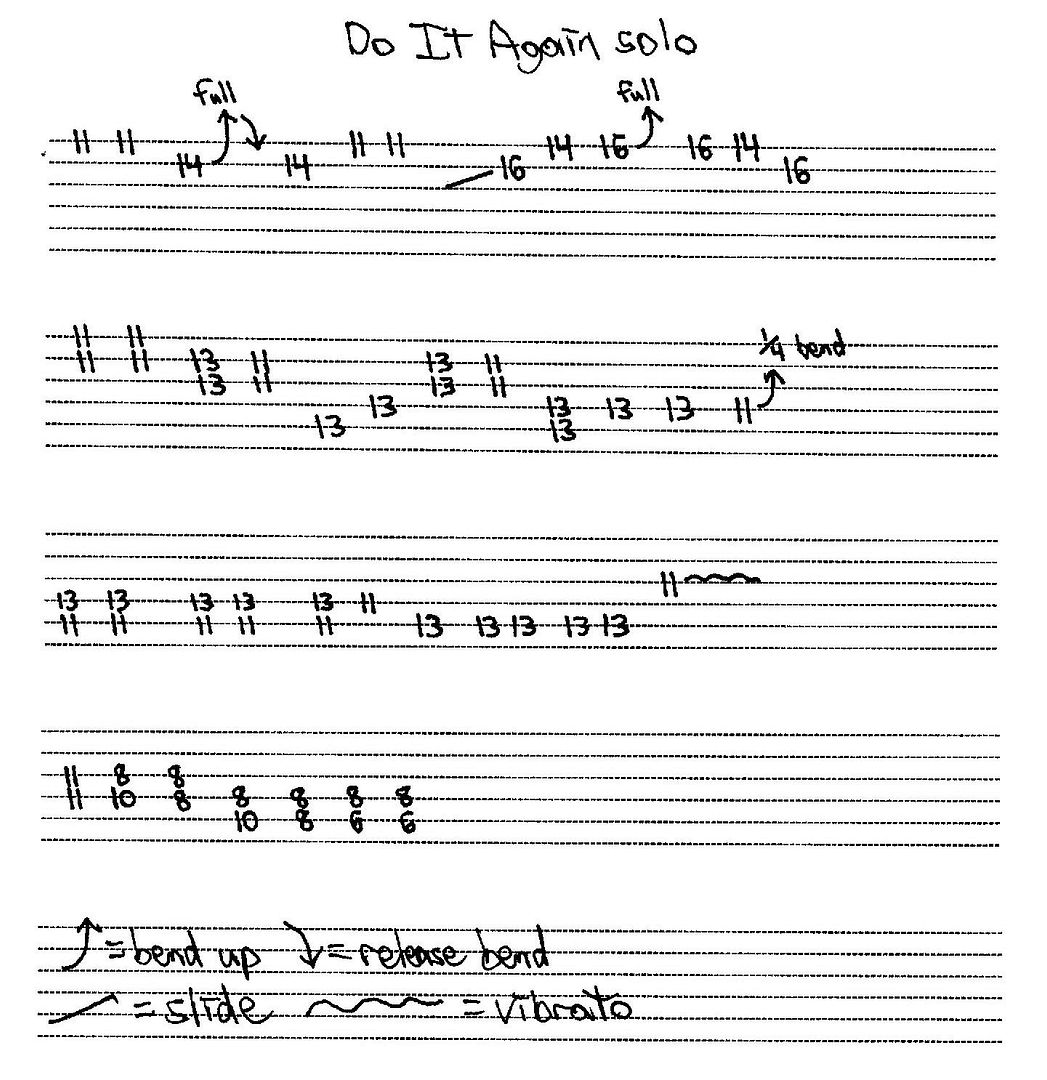 Do It Again solo
full full
11 11 14 14 11 11 16 14 16 16 14 16
11 11 13 11 13 11 1/4 bend
11 11 13 11 13 13 13 11 13 13 13 11
13 13
13 13 13 13 13 11 11
11 11 11 11 11 13 13 13 13 13
11 8 8
11 10 8 8 8 8 8
10 8 6 6
= bend up = release bend
= slide = vibrato